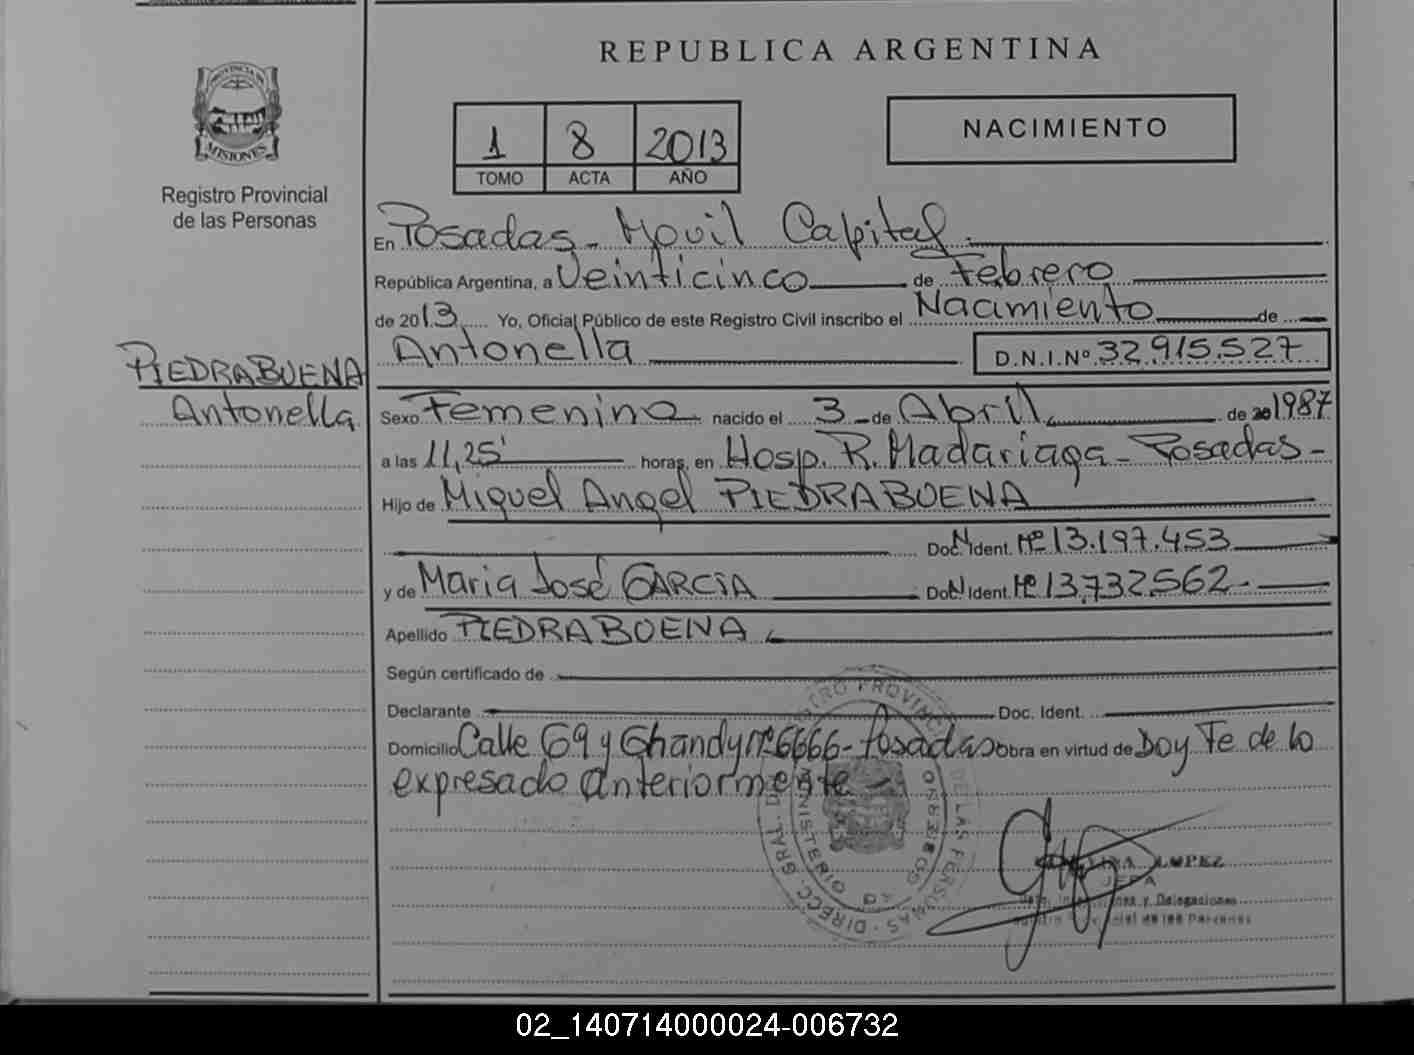 REPUBLICA ARGENTINA
PROVINCIA DE
MISIONES
Registro Provincial
de las Personas
1 8 2013
TOMO ACTA AÑO
NACIMIENTO
En Posadas - Movil Capital.
República Argentina, a Veinticinco de Febrero
de 2013 Yo, Oficial Público de este Registro Civil inscribo el Nacimiento de
Antonella D.N.I.Nº 32.915.527
PIEDRABUENA
Antonella
Sexo Femenino nacido el 3 de Abril de 1987
a las 11,25' horas, en Hosp. R. Madariaga - Posadas -
Hijo de Miguel Angel PIEDRABUENA
Doc. Ident. Nº 13.197.453
y de Maria José GARCIA Doc. Ident. Nº 13.732.562 -
Apellido PIEDRABUENA
Según certificado de
Declarante Doc. Ident.
Domicilio Calle 69 y Ghandy nº 6666 - Posadas Obra en virtud de Doy Fe de lo
expresado anteriormente -
LOPEZ
JEFA
y Delegaciones
de las Personas
02_140714000024-006732